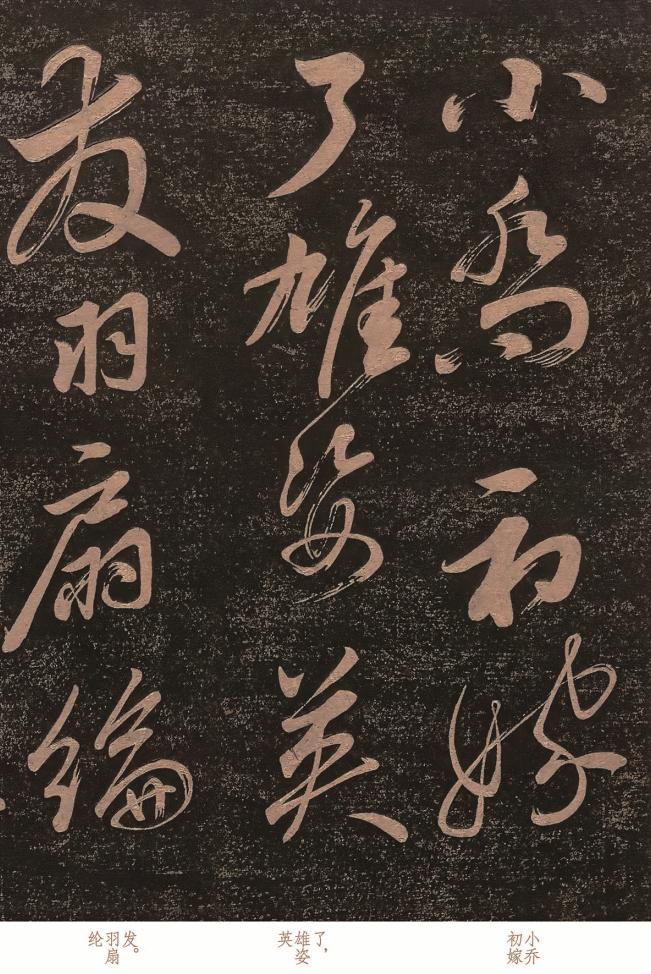 小喬初嫁
了雄姿英
發羽扇綸
小乔
初嫁
了，
雄姿
英
发。
羽扇
纶